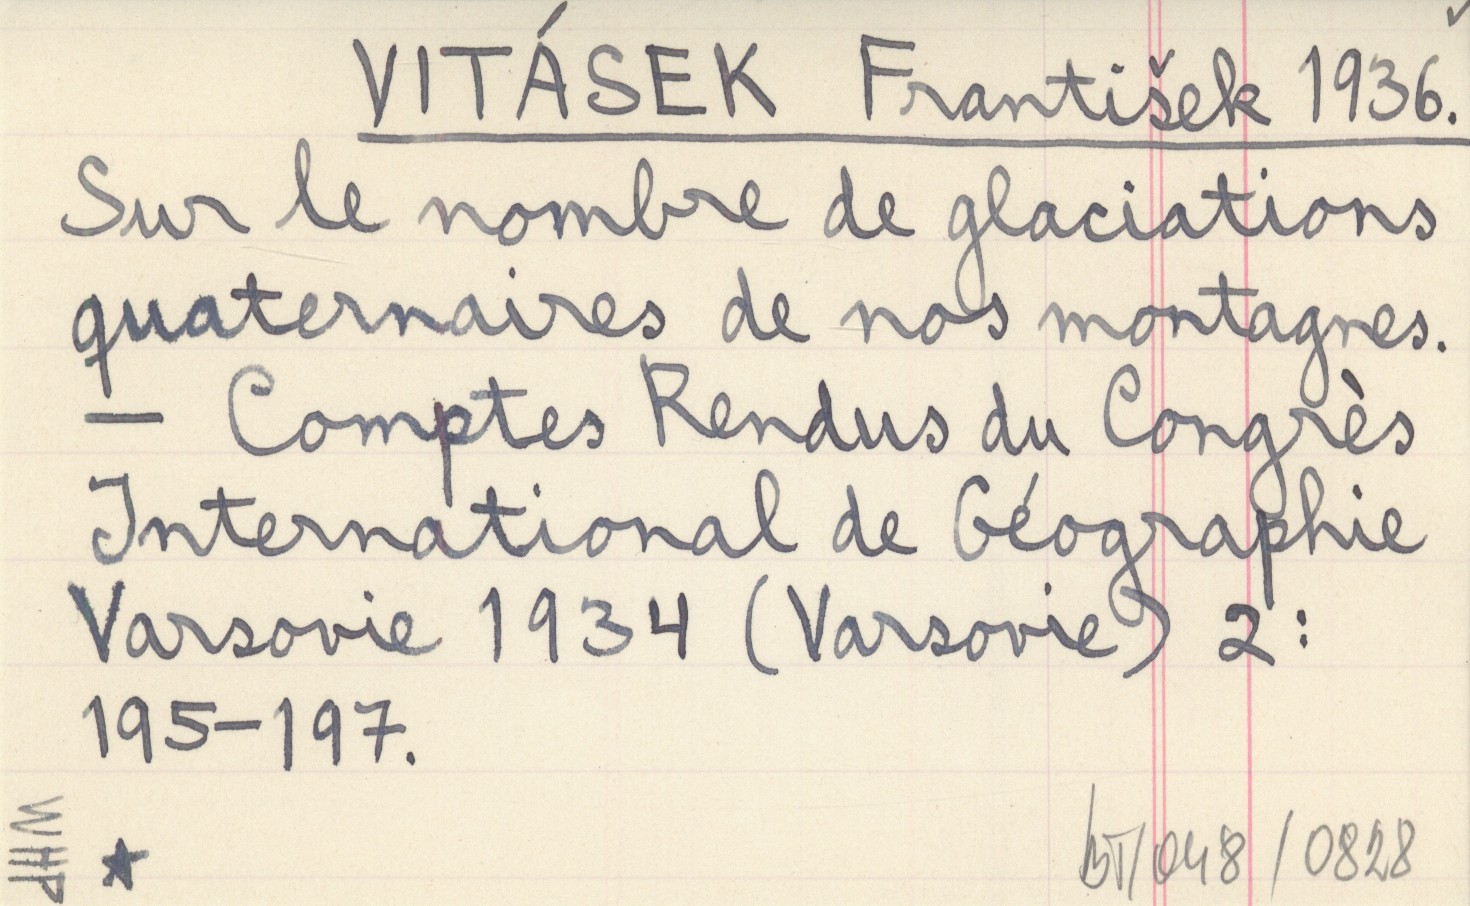 VITÁSEK František 1936.
Sur le nombre de glaciations
quaternaires de nos montagnes.
— Comptes Rendus du Congrès
International de Géographie
Varsovie 1934 (Varsovie) 2:
195-197.
WHP
BT/048/0828